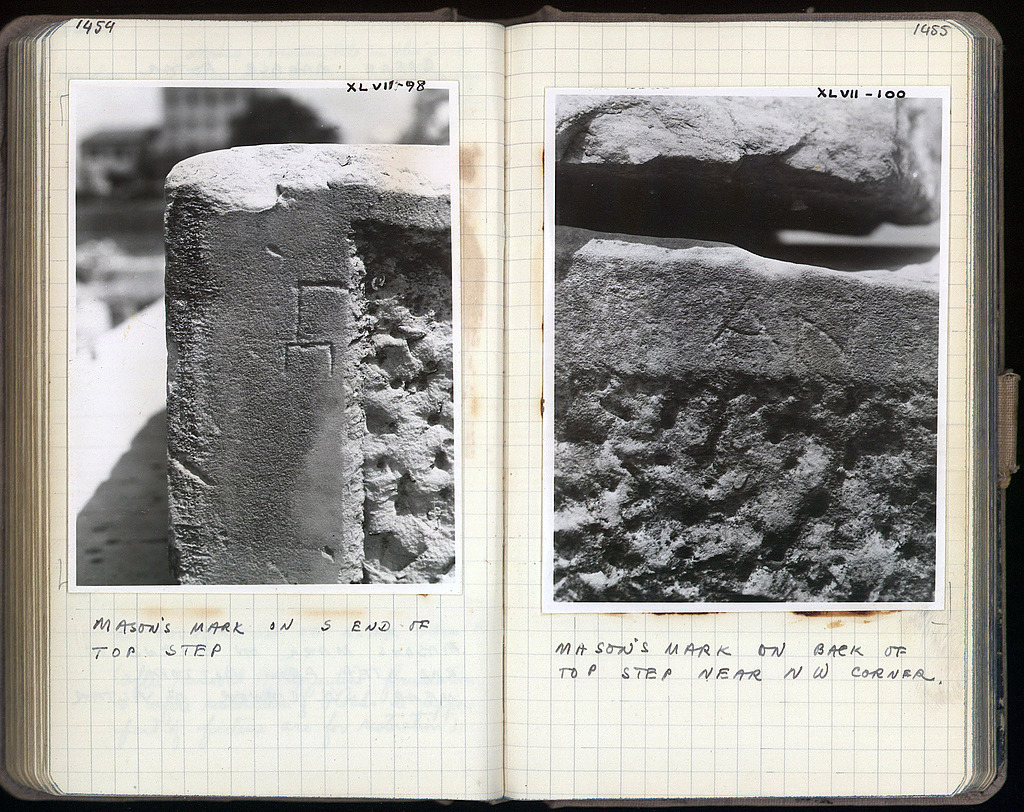 1454
XLVII-98
MASON'S MARK ON S END OF
TOP STEP
1455
XLVII-100
MASON'S MARK ON BACK OF
TOP STEP NEAR NW CORNER.